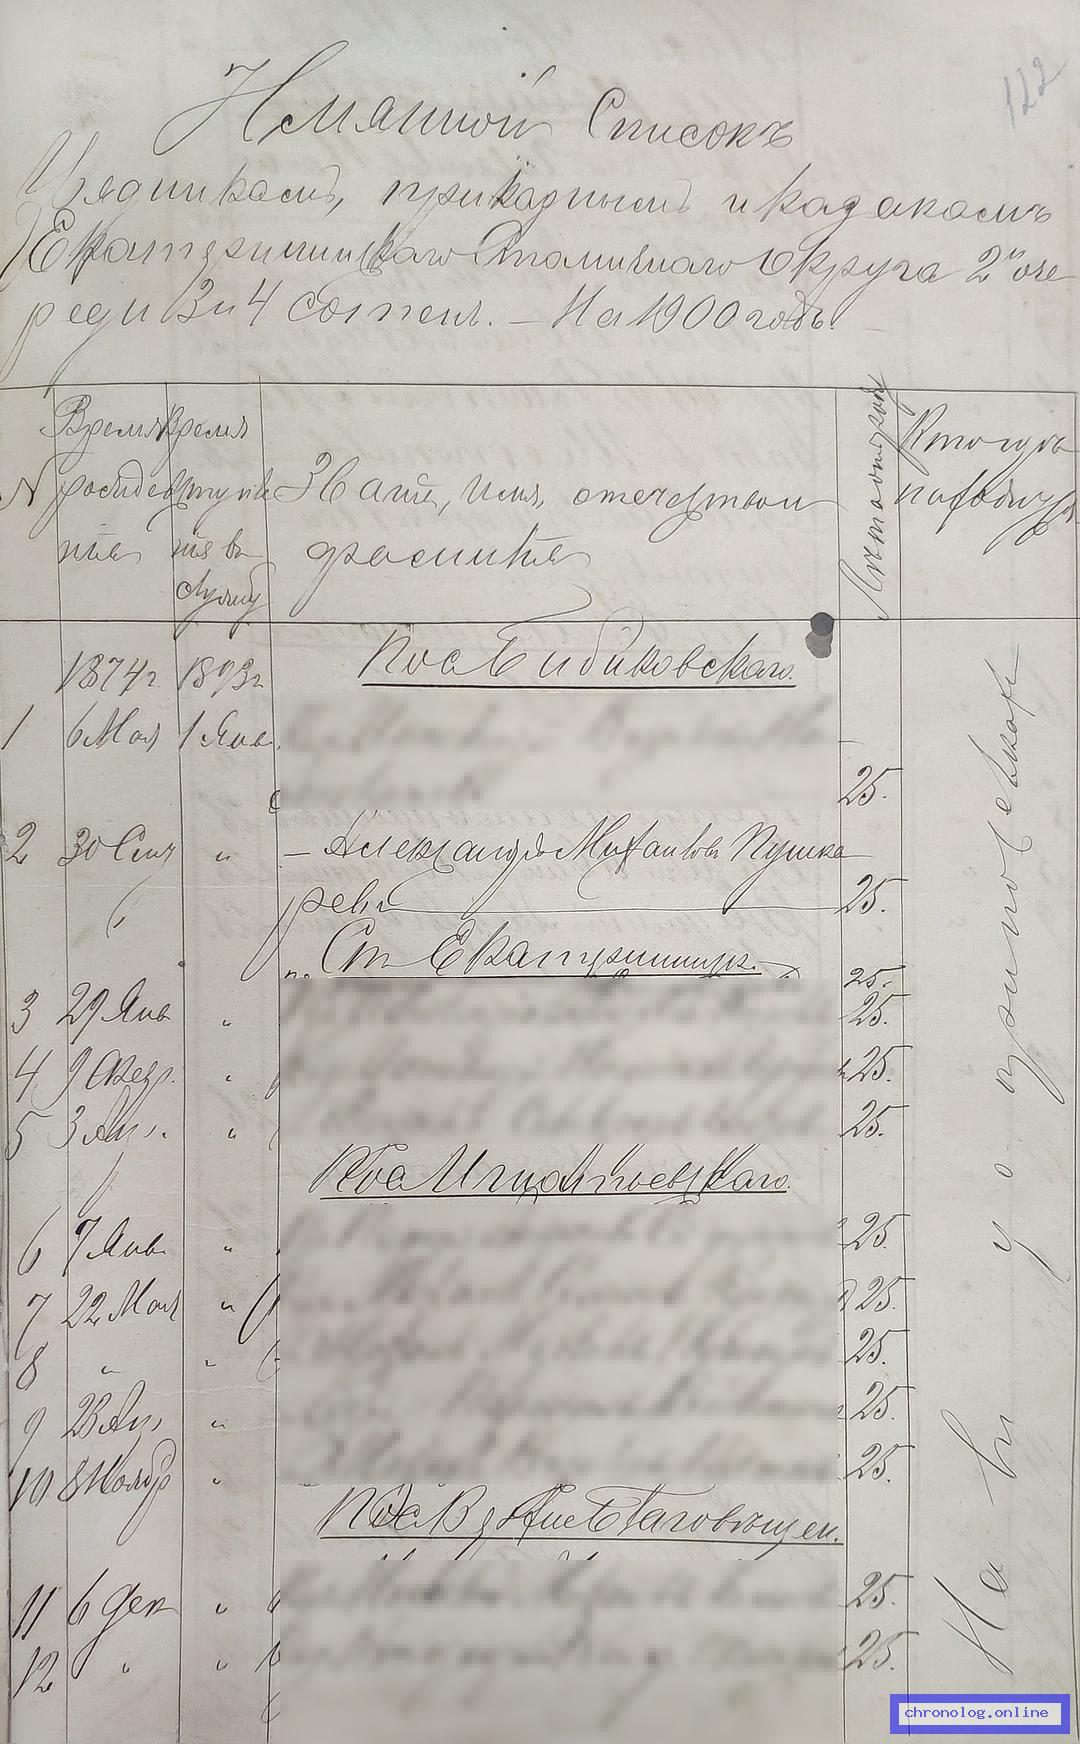 122
Имянной Списокъ
Урядникамъ, приказнымъ и казакамъ
Екатерининскаго Станичнаго Округа 2й оче
реди 3 и 4 сотенъ. — На 1900 годъ.
N Время рожде нія
Время вступле нія въ службу
Званіе, имя, отечество и фамилія
Лѣта отъ роду
Кто гдѣ находится
1874 г. 1893 г. Пос Бибиковскаго.
1 6 Мая 1 Янв. 25.
2 30 Сент " — Александръ Михаиловъ Пушка
ревъ 25.
Ст Екатерининск.
25.
3 29 Янв " 25.
4 9 Февр. " 25.
5 3 Апр. " 25.
Пос Игнатьевскаго.
6 7 Янв. " 25.
7 22 Мая " 25.
8 " " 25.
9 23 Апр. " 25.
10 8 Ноябр " 25.
Пос Благовѣщен.
11 6 Дек " 25.
12 " " 25.
На
chronolog.online